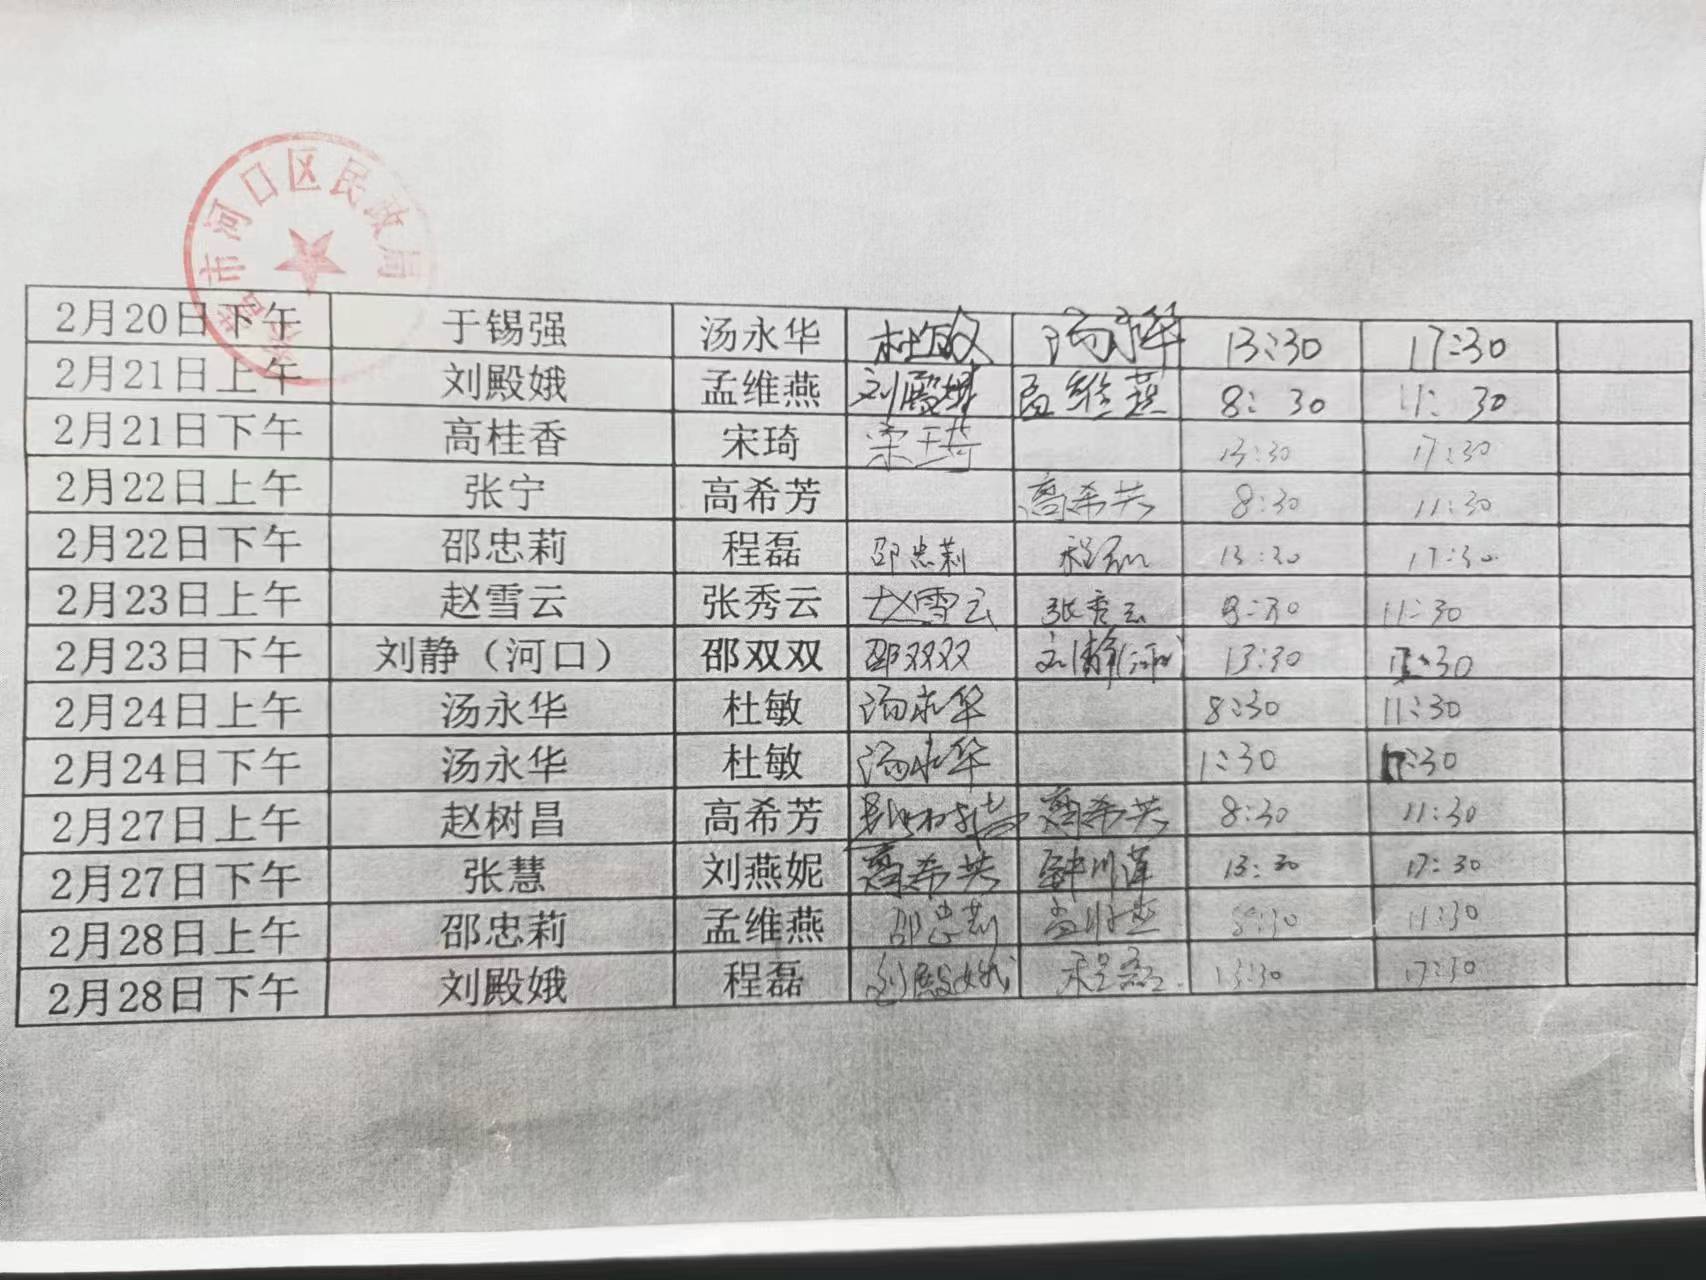 东营市河口区民政局
2月20日下午 于锡强 汤永华 杜敏 汤永华 13:30 17:30
2月21日上午 刘殿娥 孟维燕 刘殿娥 孟维燕 8:30 11:30
2月21日下午 高桂香 宋琦 宋琦 13:30 17:30
2月22日上午 张宁 高希芳 高希芳 8:30 11:30
2月22日下午 邵忠莉 程磊 邵忠莉 程磊 13:30 17:30
2月23日上午 赵雪云 张秀云 赵雪云 张秀云 8:30 11:30
2月23日下午 刘静（河口） 邵双双 邵双双 刘静(河口) 13:30 17:30
2月24日上午 汤永华 杜敏 汤永华 8:30 11:30
2月24日下午 汤永华 杜敏 汤永华 1:30 17:30
2月27日上午 赵树昌 高希芳 高希芳 8:30 11:30
2月27日下午 张慧 刘燕妮 高希芳 13:30 17:30
2月28日上午 邵忠莉 孟维燕 邵忠莉 孟维燕 8:30 11:30
2月28日下午 刘殿娥 程磊 刘殿娥 程磊 13:30 17:30